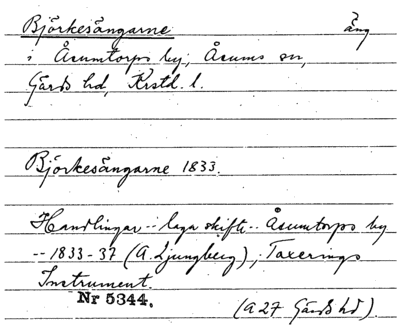 Björkesängarne äng
i Åsumtorps by, Åsums sn,
Gärds hd, Krstd. l.
Björkesängarne 1833.
Handlingar -- laga skifte -- Åsumtorps by
-- 1833-37 (A. Ljungberg), Taxerings
Instrument.
Nr 5344.
(A 27 Gärds hd)